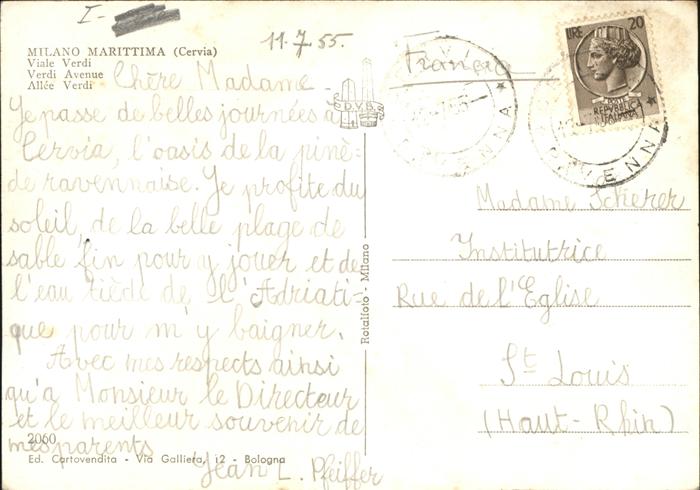 I-
11.7.55.
MILANO MARITTIMA (Cervia)
Viale Verdi
Verdi Avenue
Allée Verdi
Chère Madame
Je passe de belles journées à
Cervia, l'oasis de la pinè-
de ravennaise. Je profite du
soleil, de la belle plage de
sable fin pour y jouer et de
l'eau tiède de l'Adriati-
que pour m'y baigner.
Avec mes respects ainsi
qu'à Monsieur le Directeur
et le meilleur souvenir de
mes parents
Jean L. Pfeiffer
2060
Ed. Cartovendita - Via Galliera, 12 - Bologna
D.V.B.
Rotalfoto - Milano
Francia
LIRE 20
POSTE
REPVBBLICA
ITALIANA
RAVENNA
Madame Scherer
Institutrice
Rue de l'Eglise
St Louis
(Haut-Rhin)